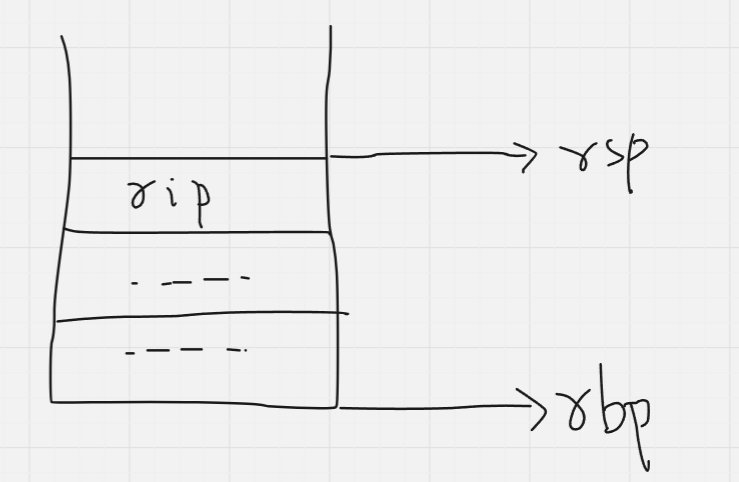 rsp
rip
rbp